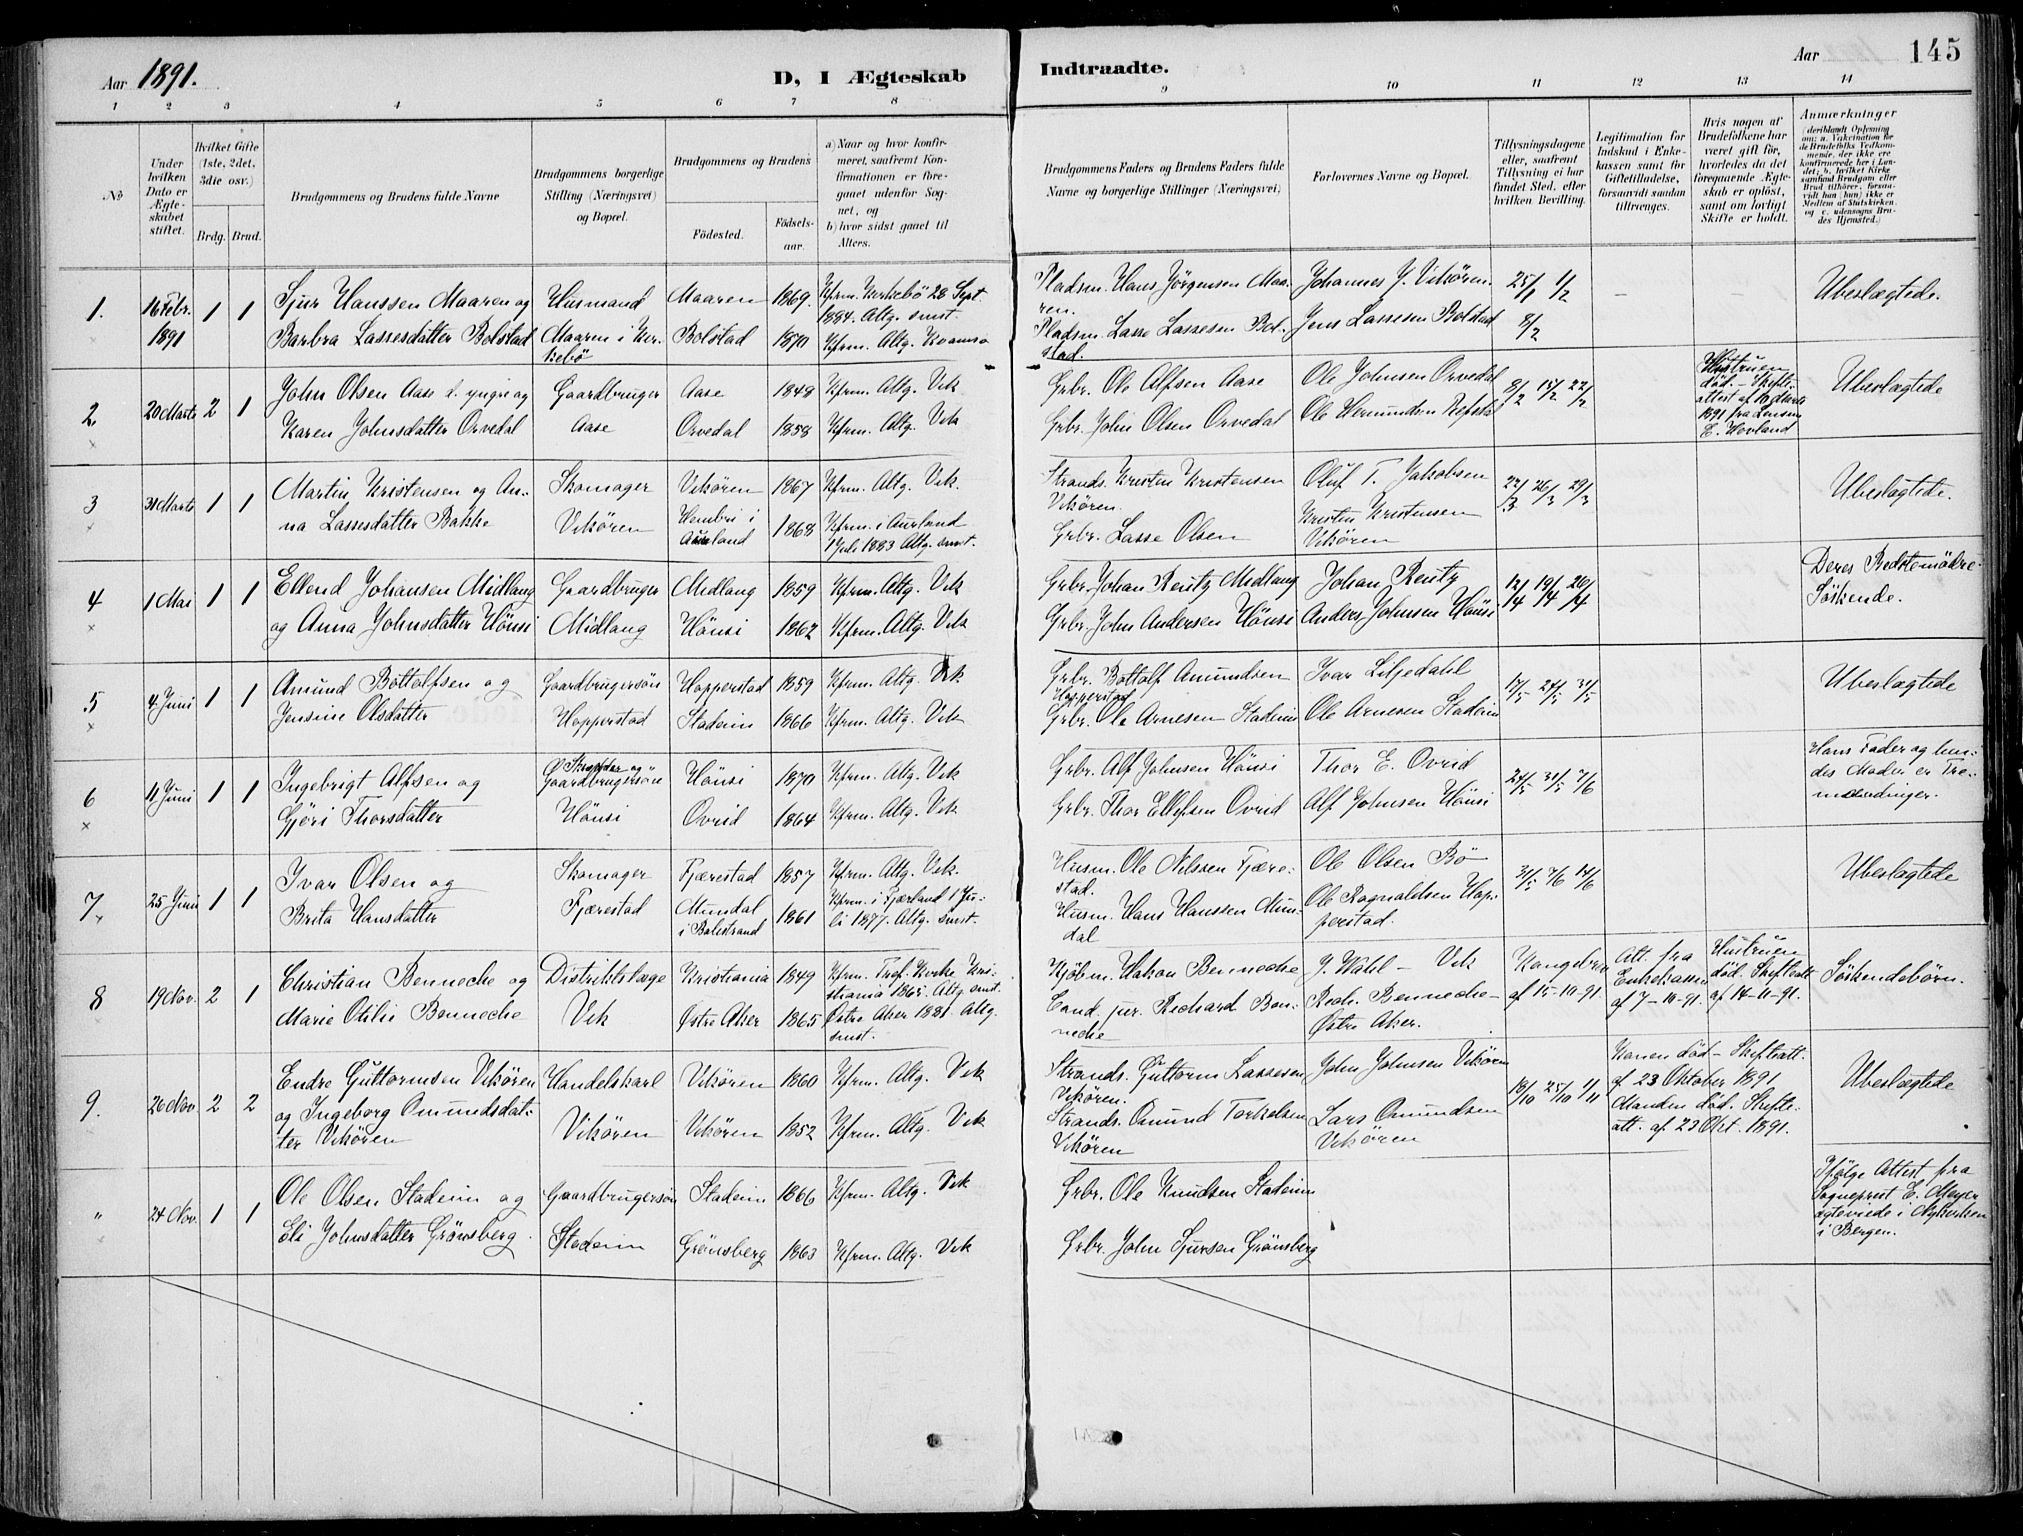 Aar 1891.
D, I Ægteskab
Indtraadte.
Aar
145
1 2 3 4 5 6 7 8 9 10 11 12 13 14
No
Under hvilken Dato er Ægteskabet stiftet.
Hvilket Gifte (1ste, 2det, 3die osv.)
Brdg. Brud.
Brudgommens og Brudens fulde Navne
Brudgommens borgerlige Stilling (Næringsvei) og Bopæl.
Brudgommens og Brudens
Fødested.
Fødsels-aar.
a) Naar og hvor konfirmeret, saafremt Konfirmationen er foregaaet udenfor Sognet, og
b) hvor sidst gaaet til Alters.
Brudgommens Faders og Brudens Faders fulde Navne og borgerlige Stillinger (Næringsvei)
Forlovernes Navne og Bopæl.
Tillysningsdagene eller, saafremt Tillysning ei har fundet Sted, efter hvilken Bevilling.
Legitimation for Indskud i Enkekassen samt for Giftetilladelse, forsaavidt saadan tiltrænges.
Hvis nogen af Brudefolkene har været gift før, hvorledes da det foregaaende Ægteskab er opløst, samt om lovligt Skifte er holdt.
Anmærkninger
(deriblandt Oplysning om: a. Vakcination for de Brudefolks Vedkommende, der ikke ere konfirmerede her i Landet; b. hvilket Kirkesamfund Brudgom eller Brud tilhører, forsaavidt han (hun) ikke er Medlem af Statskirken, og c. udensogns Brudes Hjemsted.)
1. 16 Febr. 1891 1 1
Sjur Hanssen Maaren og
Barbra Lassesdatter Bolstad
Husmand
Maaren i Kirkebö
Maaren 1869. Kfrm. Kirkebö 28 Sept. 1884. Altg. smst.
Bolstad 1870 Kfrm. Altg. Kvamsö
Pladsm. Hans Jörgensen Maaren.
Pladsm. Lasse Lassesen Bolstad.
Johannes J. Vikören
Jens Lassesen Bolstad
25/1 1/2
8/2
Ubeslægtede.
2. 20 Marts 2 1
John Olsen Aase d. yngre og
Karen Johnsdatter Orvedal
Gaardbruger
Aase
Aase 1848 Kfrm. Altg. Vik
Orvedal 1858 Kfrm. Altg. Vik
Grbr. Ole Alfsen Aase
Grbr. John Olsen Orvedal
Ole Johnsen Orvedal
Ole Hermundsen Refsdal
8/2 15/2 22/2
Hustruen död. – Skifteattest af 10 Marts 1891 fra Lensm. E. Hovland
Ubeslægtede
3 31 Marts 1 1
Martin Kristensen og Anna Lassesdatter Bakke
Skomager
Vikören
Vikören 1867 Kfrm. Altg. Vik.
i Aurland 1868 Kfrm. i Aurland 1 Juli 1883 Altg. smst.
Strands. Kristen Kristensen Vikören.
Grbr. Lasse Olsen
Oluf T. Jakobsen
Kristen Kristensen Vikören
22/3 26/3 29/3
Ubeslægtede.
4 1 Mai 1 1
Ellend Johansen Midlang
og Anna Johnsdatter Hönsi
Gaardbruger
Midlang
Midlang 1859 Kfrm. Altg. Vik
Hönsi 1862 Kfrm. Altg. Vik
Grbr. Johan Rentz Midlang
Grbr. John Andersen Hönsi
Johan Rentz
Anders Johnsen Hönsi
12/4 19/4 26/4
Deres Bedstemödre Söskende.
5 4 Juni 1 1
Amund Bottolfsen og
Jensine Olsdatter
Gaardbrugersön
Hopperstad
Hopperstad 1859 Kfrm. Altg. Vik.
Stadeim 1866 Kfrm. Altg. Vik
Grbr. Bottolf Amundsen Hopperstad
Grbr. Ole Arnesen Stadeim
Ivar Liljedahl
Ole Arnesen Stadeim
17/5 24/5 31/5
Ubeslægtede
6 11 Juni 1 1
Ingebrigt Alfsen og
Gjöri Thorsdatter
Skrædder og Gaardbrugersön
Hönsi
Hönsi 1870 Kfrm. Altg. Vik
Ovrid 1864 Kfrm. Altg. Vik
Grbr. Alf Johnsen Hönsi
Grbr. Thor Ellefsen Ovrid
Thor E. Ovrid
Alf Johnsen Hönsi
24/5 31/5 7/6
Hans Fader og hendes Moder er Tremenninger.
7 25 Juni 1 1
Ivar Olsen og
Brita Hansdatter
Skomager
Fjærestad
Fjærestad 1857 Kfrm. Altg. Vik.
Mundal i Balestrand 1861 Kfrm. i Fjærland 1 Juli 1877. Altg. smst.
Husm. Ole Nilssen Fjærestad.
Husm. Hans Hanssen Mundal
Ole Olsen Bö
Ole Rognaldsen Hopperstad.
31/5 7/6 14/6
Ubeslægtede
8 19 Nov. 2 1
Christian Benneche og
Marie Otilie Benneche
Distriktslæge
Vik
Kristiania 1849 Kfrm. Tref. Kirke Kristiania 1865. Altg. smst.
Østre Aker 1865 Østre Aker 1881. Altg. smst.
Kjöbm. Hakon Benneche
Cand. jur. Richard Benneche
J. Wahl – Vik
Rich. Benneche – Østre Aker.
Kongebrev af 15-10-91.
Att. fra Enkekassen af 7-10-91.
Hustruen död. Skifteatt. af 14-11-91.
Söskendebörn.
9. 26 Nov. 2 2
Endre Guttormsen Vikören
og Ingeborg Omundsdatter Vikören
Handelskarl
Vikören
Vikören 1860 Kfrm. Altg. Vik
Vikören 1852 Kfrm. Altg. Vik
Strands. Guttorm Lassesen Vikören.
Strands. Omund Torkelsen Vikören
John Johnsen Vikören
Lars Omundsen Vikören
18/10 25/10 1/11
Konen död – Skifteatt. af 23 Oktober 1891
Manden död. Skifteatt. af 23 Okt. 1891.
Ubeslægtede
" 24 Nov. 1 1
Ole Olsen Stadeim og
Eli Johnsdatter Grönsberg.
Gaardbrugersön
Stadeim
Stadeim 1866 Kfrm. Altg. Vik
Grönsberg 1863 Kfrm. Altg. Vik
Grbr. Ole Knudsen Stadeim
Grbr. John Sjursen Grönsberg
Ifølge Attest fra Sogneprest E. Meyer ægteviede i Nykirken i Bergen.